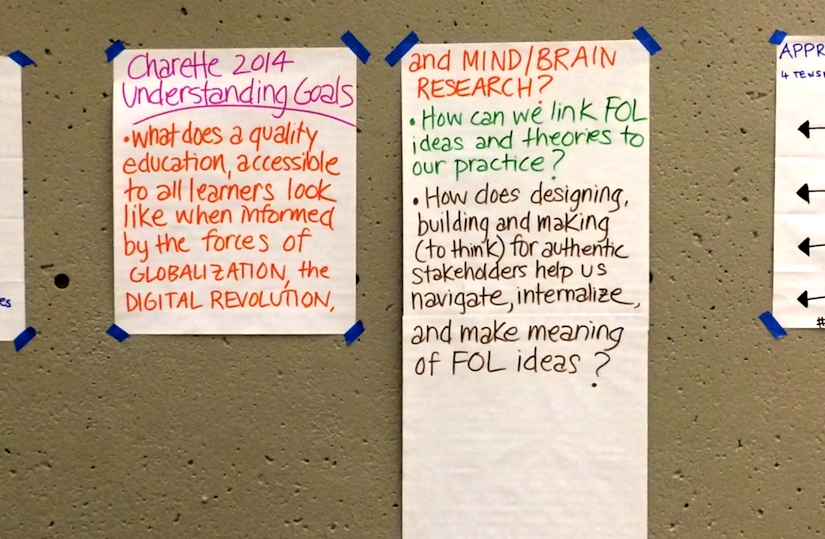 Charette 2014
Understanding Goals
• What does a quality
education, accessible
to all learners look
like when informed
by the forces of
GLOBALIZATION, the
DIGITAL REVOLUTION,
and MIND/BRAIN
RESEARCH?
• How can we link FOL
ideas and theories to
our practice?
• How does designing,
building and making
(to think) for authentic
stakeholders help us
navigate, internalize,
and make meaning
of FOL ideas?
es
APPR
4 TENS
#